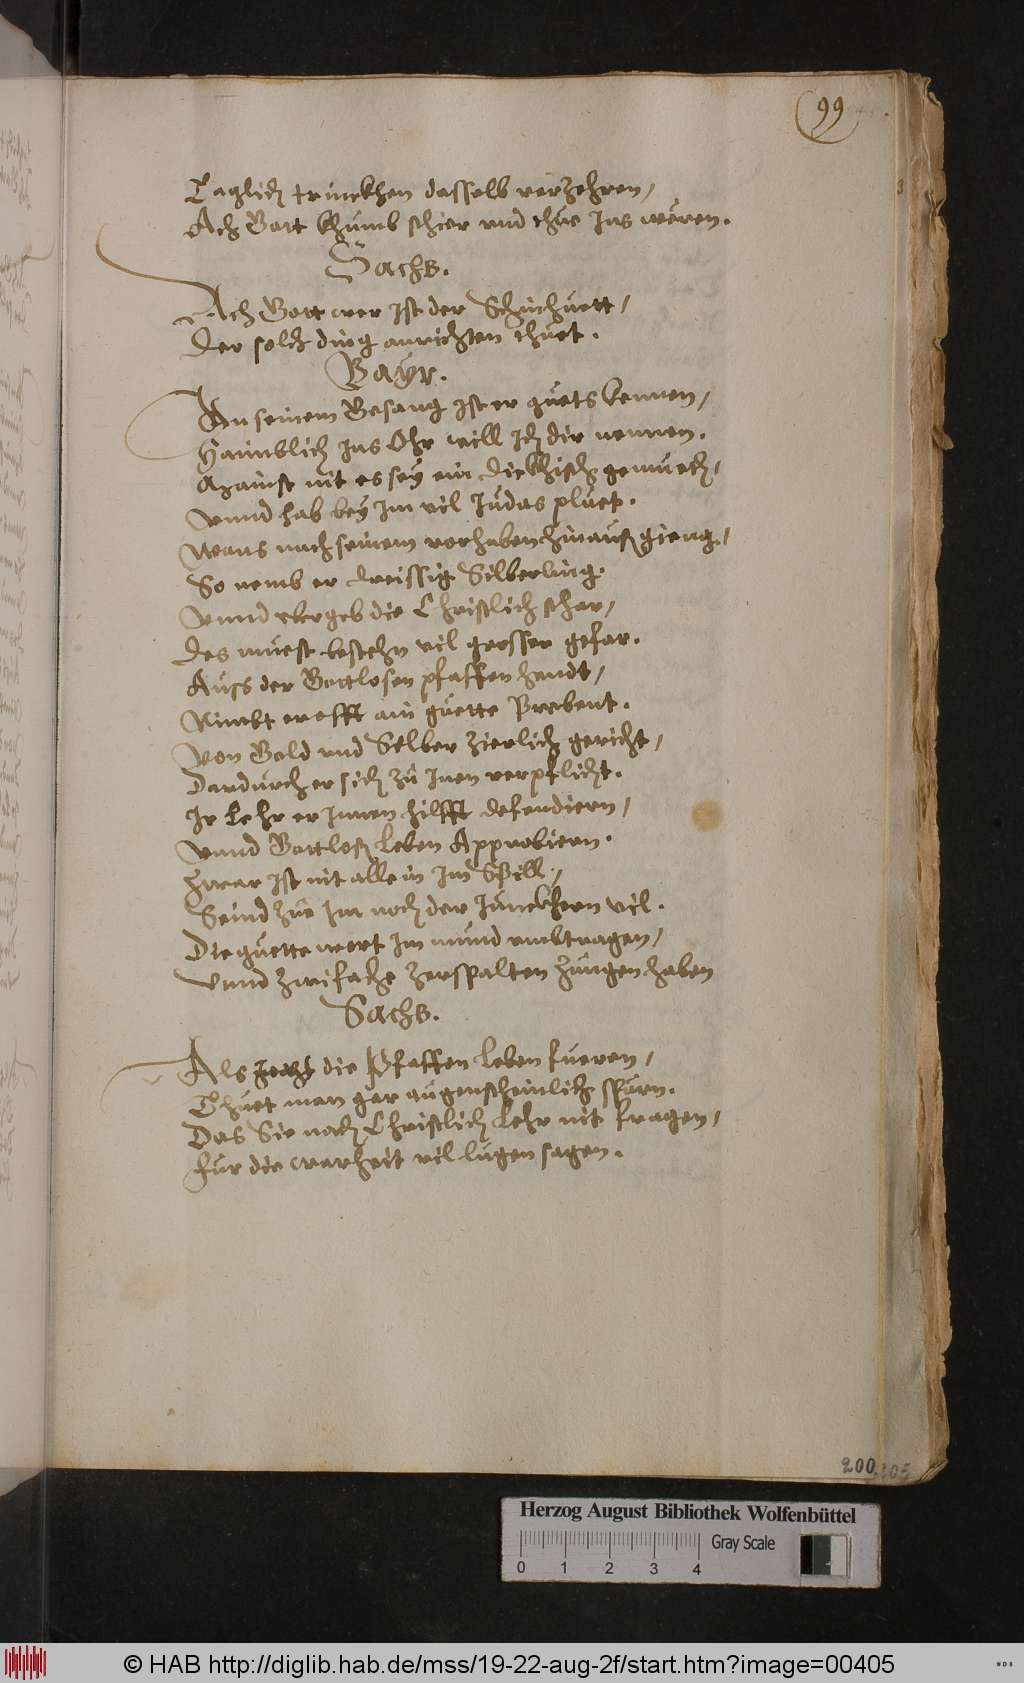 99
Taglich trinckhen dasselb verzehren /
Ach Gott khumb schier vnd thue Ins wëren.
Sachs.
Ach Gott wer ist der
Der solch ding anrichten thuet.
Bayr.
An seinem Gesang ist er guets kennen /
Haimblich Ins Ohr will Ich dir nennen.
Mainst nit es sey ein gemuech /
Vnnd hab bey Im vil Judas pluet.
Wans nach seinem vorhaben hinauß gieng /
So nemb er dreissig Silberling.
Vnnd vbergeb die Christlich schar /
Des muest bestehn vil grosser gefar.
Auss der Gottlosen pfaffen handt /
Nimbt er offt ain guette Prebent.
Von Gold vnd Silber zierlich gericht /
Dardurch er sich zu Inen verpflicht.
Ir Lehr er Innen hilfft defendiern /
Vnnd Gottloß Leben Approbiern.
Zwar ist nit allein Im Spill /
Seind zue Im noch der Junckhern vil.
Die guette wort Im mund vmbtragen /
Vnnd zwifache zerspalten zungen haben
Sachs.
Als Jetzt die Pfaffen Leben fueren /
Thuet man gar augenscheinlich spürn.
Das Sie nach Christlich Lehr nit fragen /
für die warheit vil lugen sagen.
200
Herzog August Bibliothek Wolfenbüttel
Gray Scale
0 1 2 3 4
© HAB http://diglib.hab.de/mss/19-22-aug-2f/start.htm?image=00405